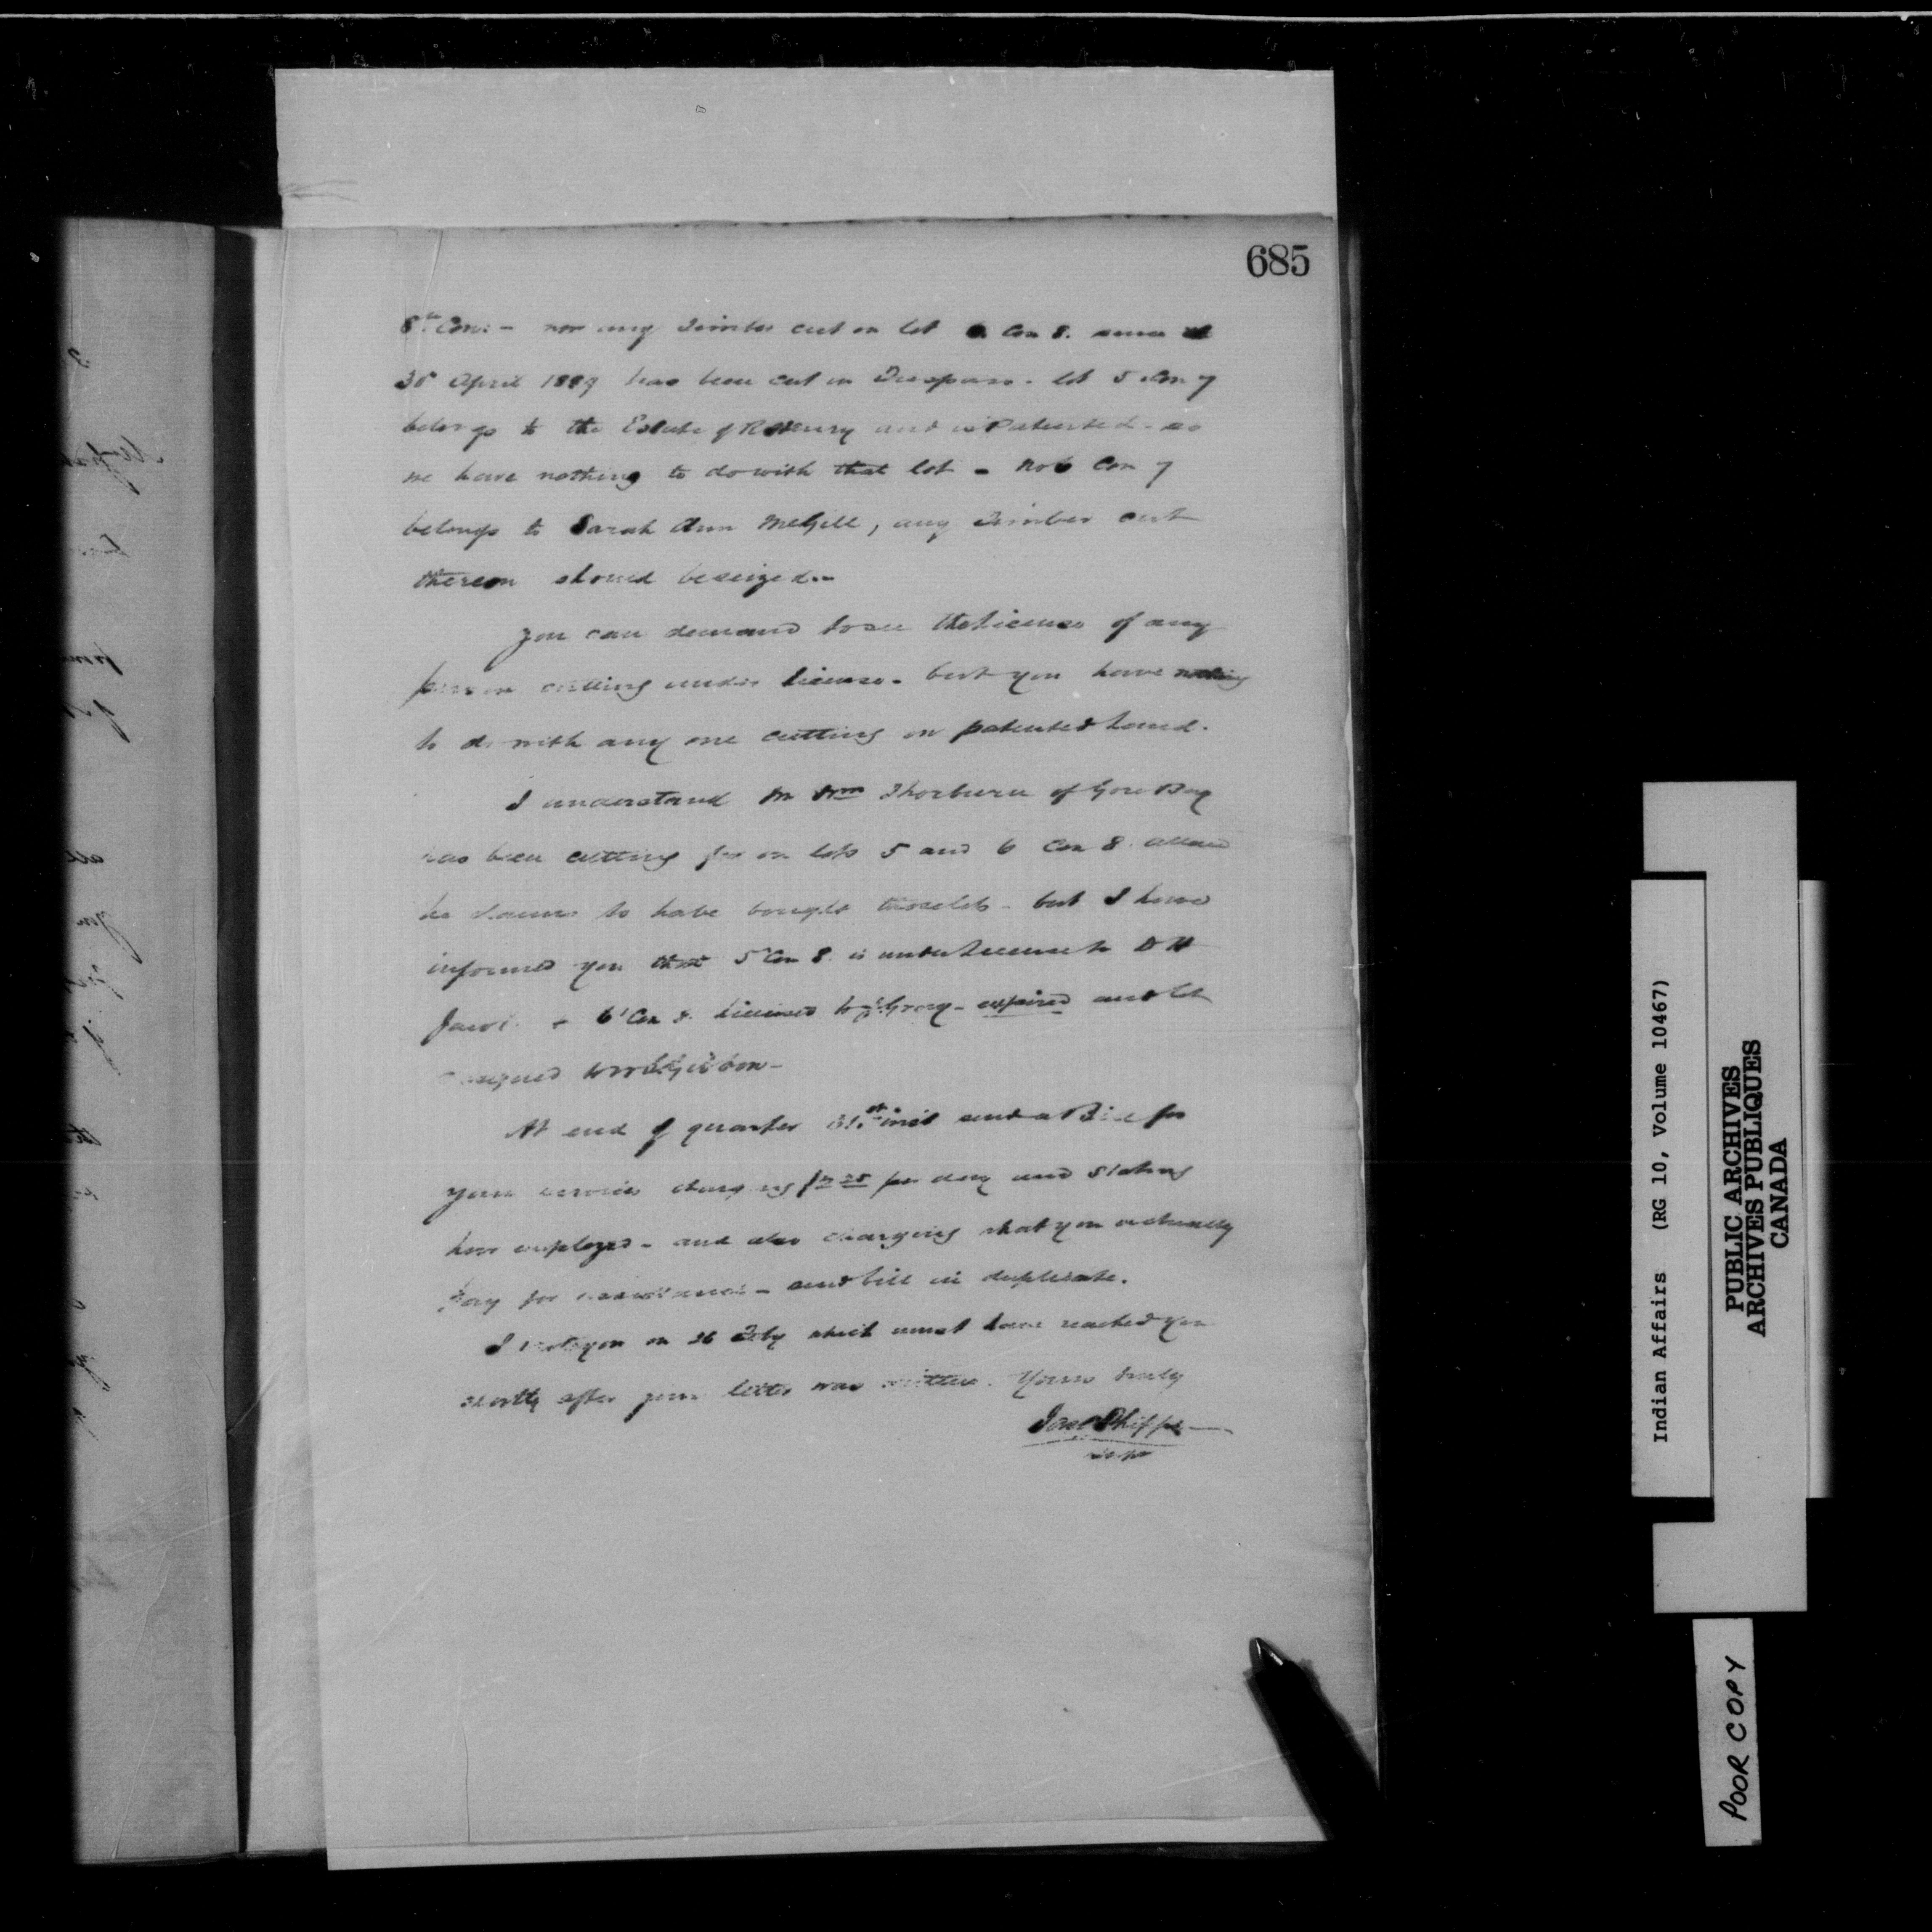 685
8th Con: - nor any Timber cut on lot 6 Con 8. since
30 April 1889 has been cut in Trespass. lot 5 Con 7
belongs to the Estate of R Henry and is Patented - so
we have nothing to do with that lot - No 6 Con 7
belongs to Sarah Ann McGill, any Timber cut
thereon should be seized.-
You can demand to see the License of any
person cutting under license. but you have nothing
to do with any one cutting on patented Land.
I understand Mr Wm Thorburn of Gore Bay
has been cutting for on lots 5 and 6 Con 8
he claims to have bought those lots - but I have
informed you that 5 Con 8. is under License to D H
+ 6 Con 8. licensed to Gray - expired and lot
assigned to
At end of quarter 31st inst send a Bill for
your services charging per day and stating
how employed - and also charging what you actually
pay for assistance - send bill in duplicate.
I wrote you on 26 Feby which must have reached you
shortly after your letter was written. Yours truly
Jas C Phipps
Indian Affairs (RG 10, Volume 10467)
PUBLIC ARCHIVES
ARCHIVES PUBLIQUES
CANADA
POOR COPY